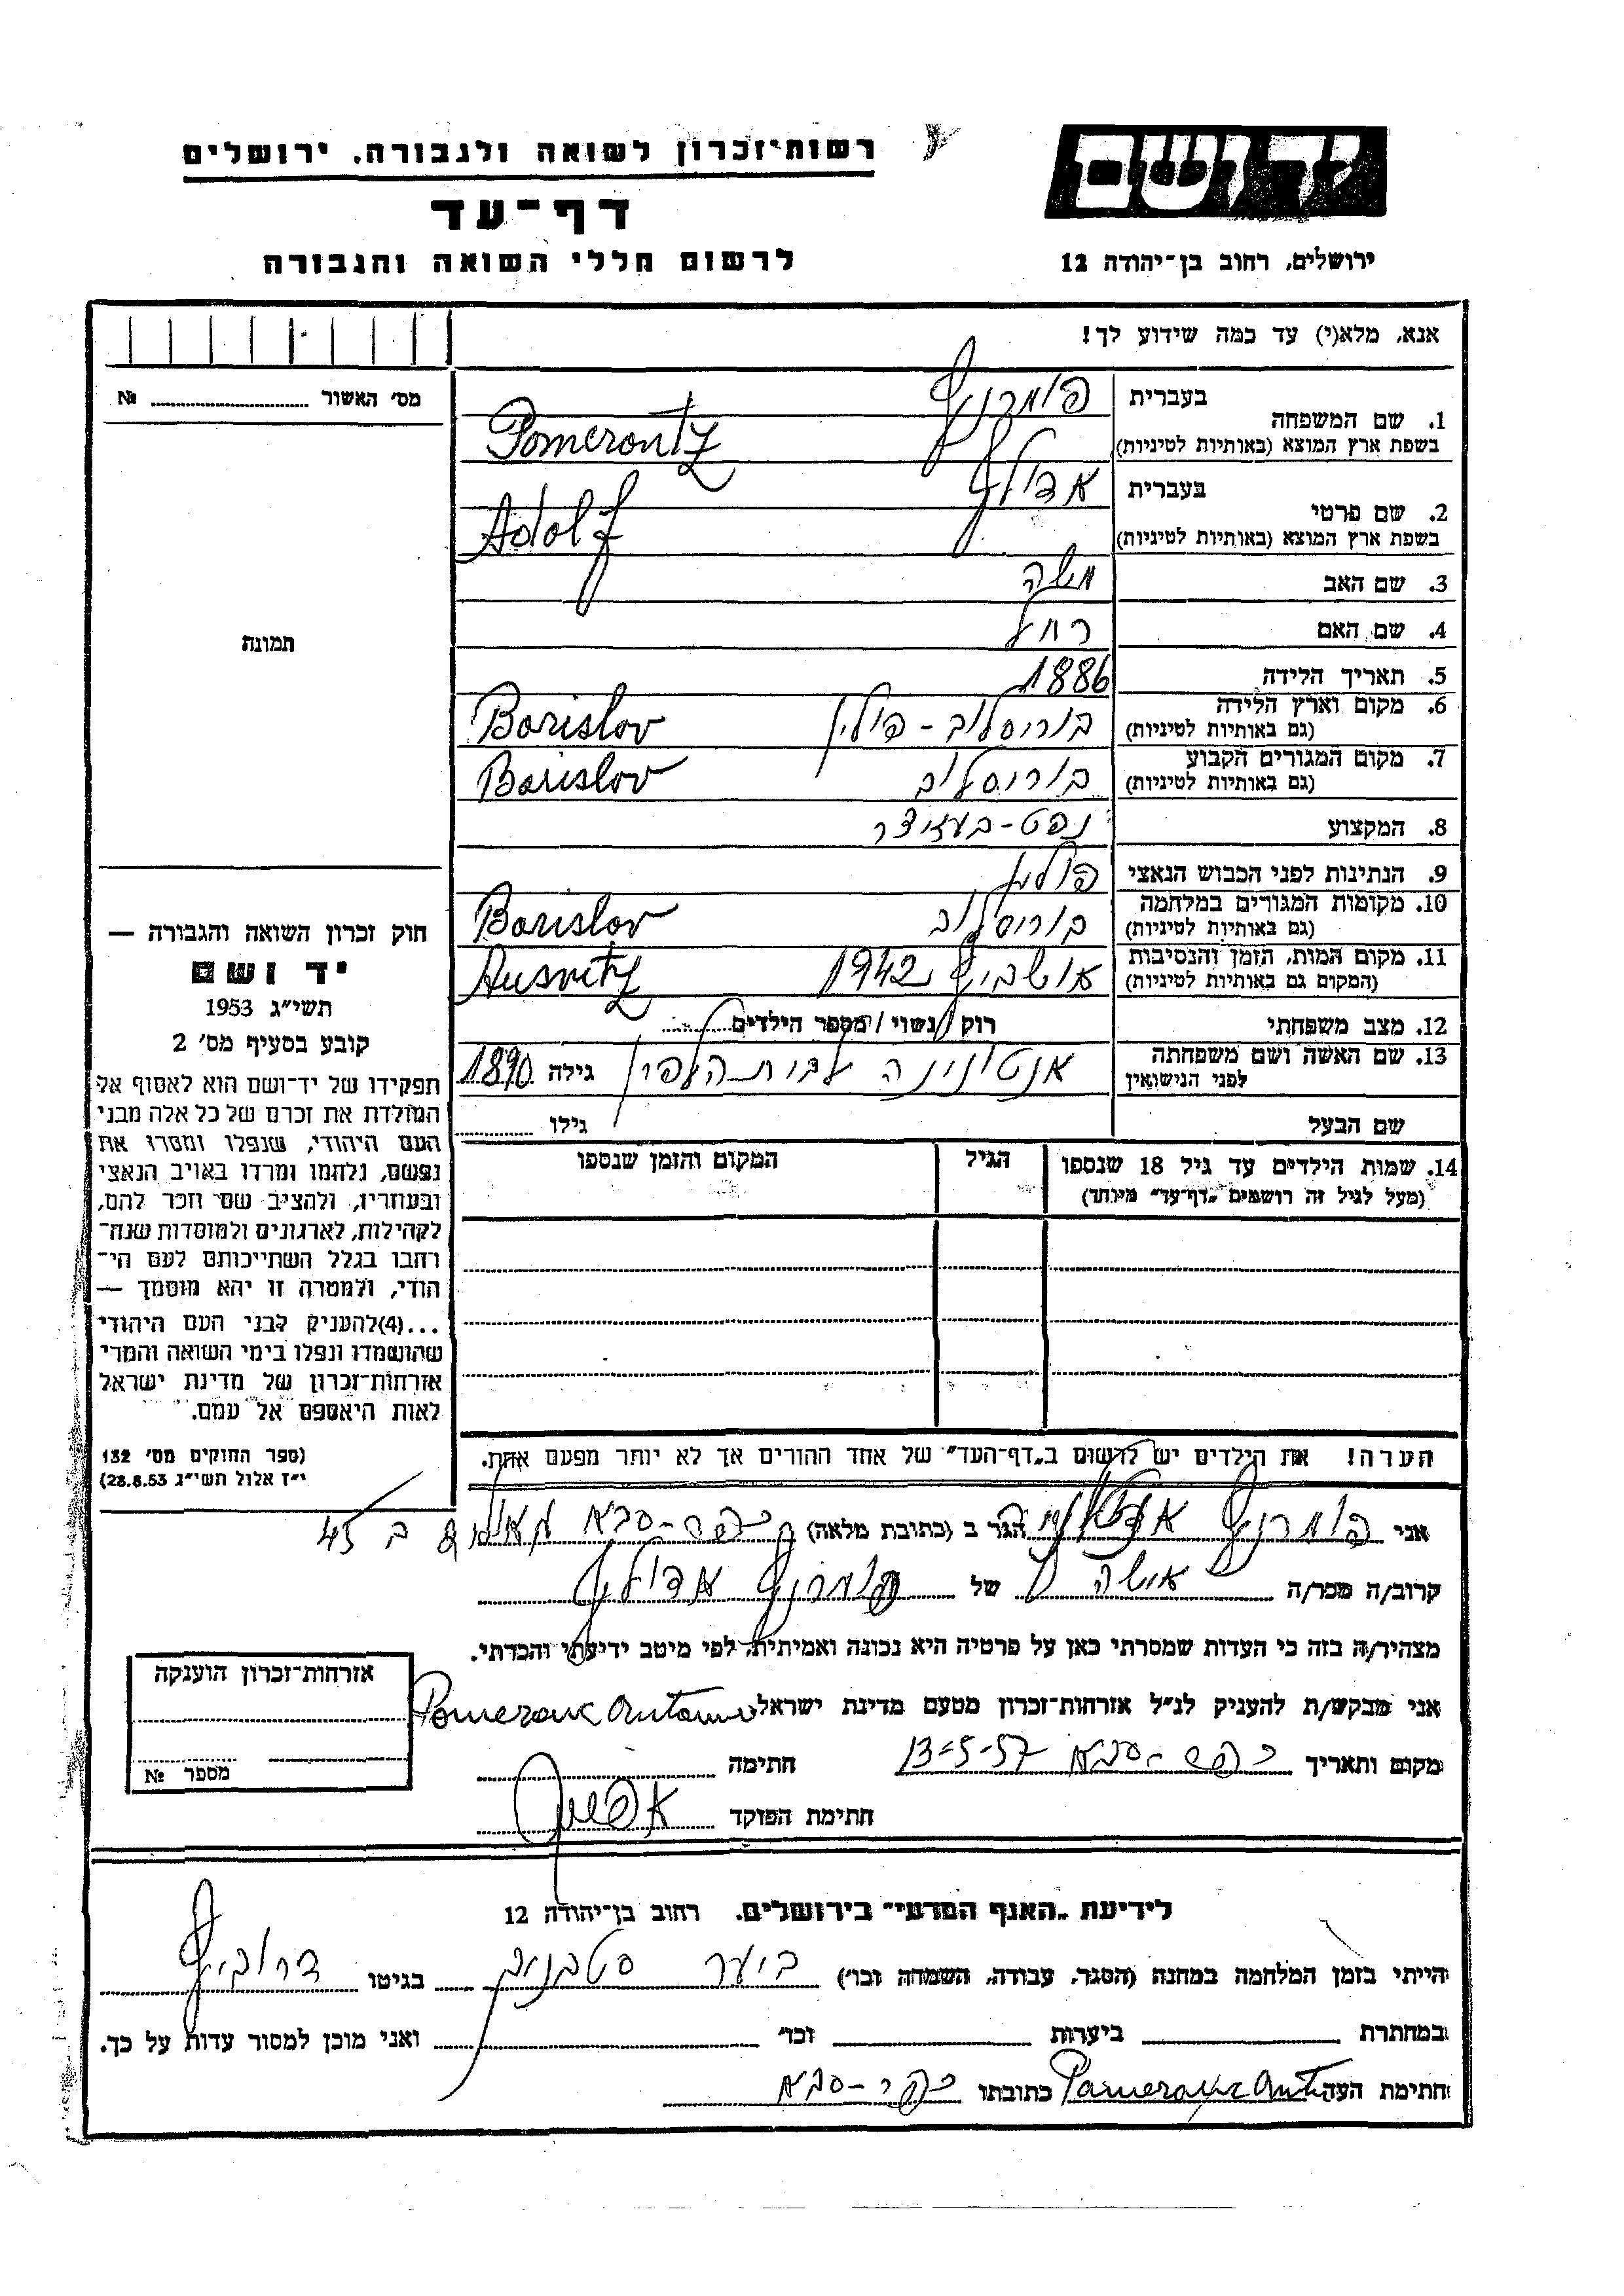 רשות־זכרון לשואה ולגבורה, ירושלים
יד ושם
דף־עד
לרשום חללי השואה והגבורה
ירושלים, רחוב בן־יהודה 12
אנא, מלא(י) עד כמה שידוע לך!
מס׳ האשור № ..........
תמונה
1. שם המשפחה בעברית פומרנץ
בשפת ארץ המוצא (באותיות לטיניות) Pomerontz
2. שם פרטי בעברית אדולף
בשפת ארץ המוצא (באותיות לטיניות) Adolf
3. שם האב משה
4. שם האם רחל
5. תאריך הלידה 1886
6. מקום וארץ הלידה בוריסלוב - פולין Borislov
(גם באותיות לטיניות)
7. מקום המגורים הקבוע בוריסלוב Borislov
(גם באותיות לטיניות)
8. המקצוע נפט-
9. הנתינות לפני הכבוש הנאצי
10. מקומות המגורים במלחמה בוריסלוב Borislov
(גם באותיות לטיניות)
11. מקום המות, הזמן והנסיבות אושביץ 1942 Ausvitz
(המקום גם באותיות לטיניות)
12. מצב משפחתי רוק/נשוי/מספר הילדים..........
13. שם האשה ושם משפחתה אנטונינה לבית הלפרין גילה 1890
לפני הנישואין
שם הבעל גילו ..........
14. שמות הילדים עד גיל 18 שנספו הגיל המקום והזמן שנספו
(מעל לגיל זה רושמים „דף־עד״ מיוחד)
הערה! את הילדים יש לרשום ב„דף־העד״ של אחד ההורים אך לא יותר מפעם אחת.
חוק זכרון השואה והגבורה —
יד ושם
תשי״ג 1953
קובע בסעיף מס׳ 2
תפקידו של יד־ושם הוא לאסוף אל
המולדת את זכרם של כל אלה מבני
העם היהודי, שנפלו ומסרו את
נפשם, נלחמו ומרדו באויב הנאצי
ובעוזריו, ולהציב שם וזכר להם,
לקהילות, לארגונים ולמוסדות שנח־
רחבו בגלל השתייכותם לעם הי־
הודי, ולמטרה זו יהא מוסמך —
...(4)להעניק לבני העם היהודי
שהושמדו ונפלו בימי השואה והמרי
אזרחות־זכרון של מדינת ישראל
לאות היאספם אל עמם.
(ספר החוקים מס׳ 132
י״ז אלול תשי״ג 28.8.53)
אני פומרנץ הגר ב (כתובת מלאה) כפר-סבא ב 45
קרוב/ה מכר/ה אשה של פומרנץ אדולף
מצהיר/ה בזה כי העדות שמסרתי כאן על פרטיה היא נכונה ואמיתית לפי מיטב ידיעתי והכרתי.
אני מבקש/ת להעניק לנ״ל אזרחות־זכרון מטעם מדינת ישראל
מקום ותאריך כפר-סבא 13-5-57 חתימה
חתימת הפוקד
אזרחות־זכרון הוענקה
מספר №
לידיעת „האגף המדעי״ בירושלים. רחוב בן־יהודה 12
הייתי בזמן המלחמה במחנה (הסגר, עבודה, השמדה וכו׳) ביער בגיטו
במחתרת ביערות וכו׳ ואני מוכן למסור עדות על כך.
חתימת העד כתובתו כפר-סבא